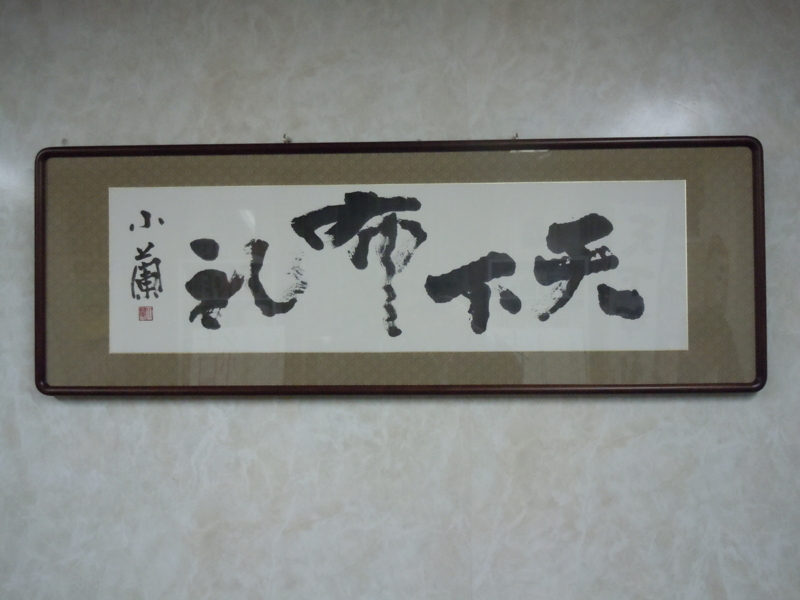 天下布礼
小蘭